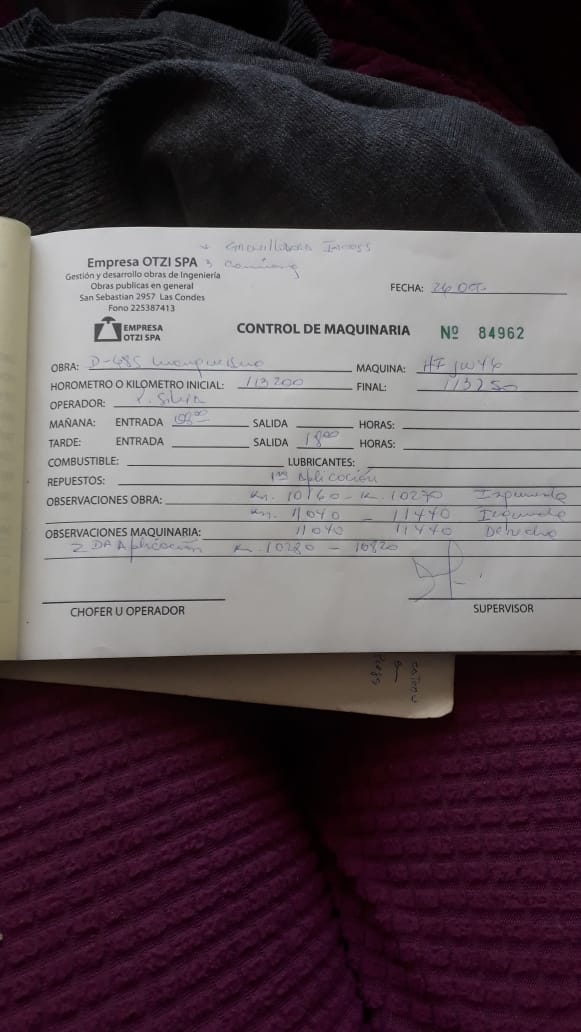 Empresa OTZI SPA
Gestión y desarrollo obras de Ingeniería
Obras publicas en general
San Sebastian 2957 Las Condes
Fono 225387413
FECHA: 26 Oct
EMPRESA OTZI SPA
CONTROL DE MAQUINARIA Nº 84962
OBRA: D-485 MAQUINA:
HOROMETRO O KILOMETRO INICIAL: 113200 FINAL: 113250
OPERADOR: Silva
MAÑANA: ENTRADA SALIDA HORAS:
TARDE: ENTRADA SALIDA 18⁰⁰ HORAS:
COMBUSTIBLE: LUBRICANTES:
REPUESTOS: 1ra Aplicación
OBSERVACIONES OBRA: Km. 10160 - K. 10270 Izquierda
Km. 11040 - 11440 Izquierda
OBSERVACIONES MAQUINARIA: 11040 11440 Derecho
2 DA Aplicación K. 10280 - 10820
CHOFER U OPERADOR SUPERVISOR